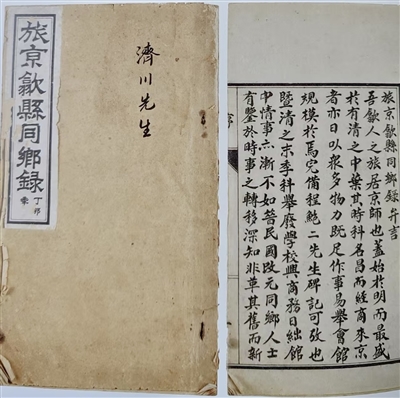 旅京歙縣同鄉錄
丁卯
濟川先生
旅京歙縣同鄉錄弁言
吾歙人之旅居京師也蓋始於明而最盛
於有清之中葉其時科名昌而經商來京
者亦日以衆多物力既足作事易舉會館
規模於焉完備程鮑二先生碑記可攷也
暨清之末季科舉廢學校興商務日絀館
中情事亦漸不如昔民國改元同鄉人士
有鑒於時事之轉移深知非革其舊而新